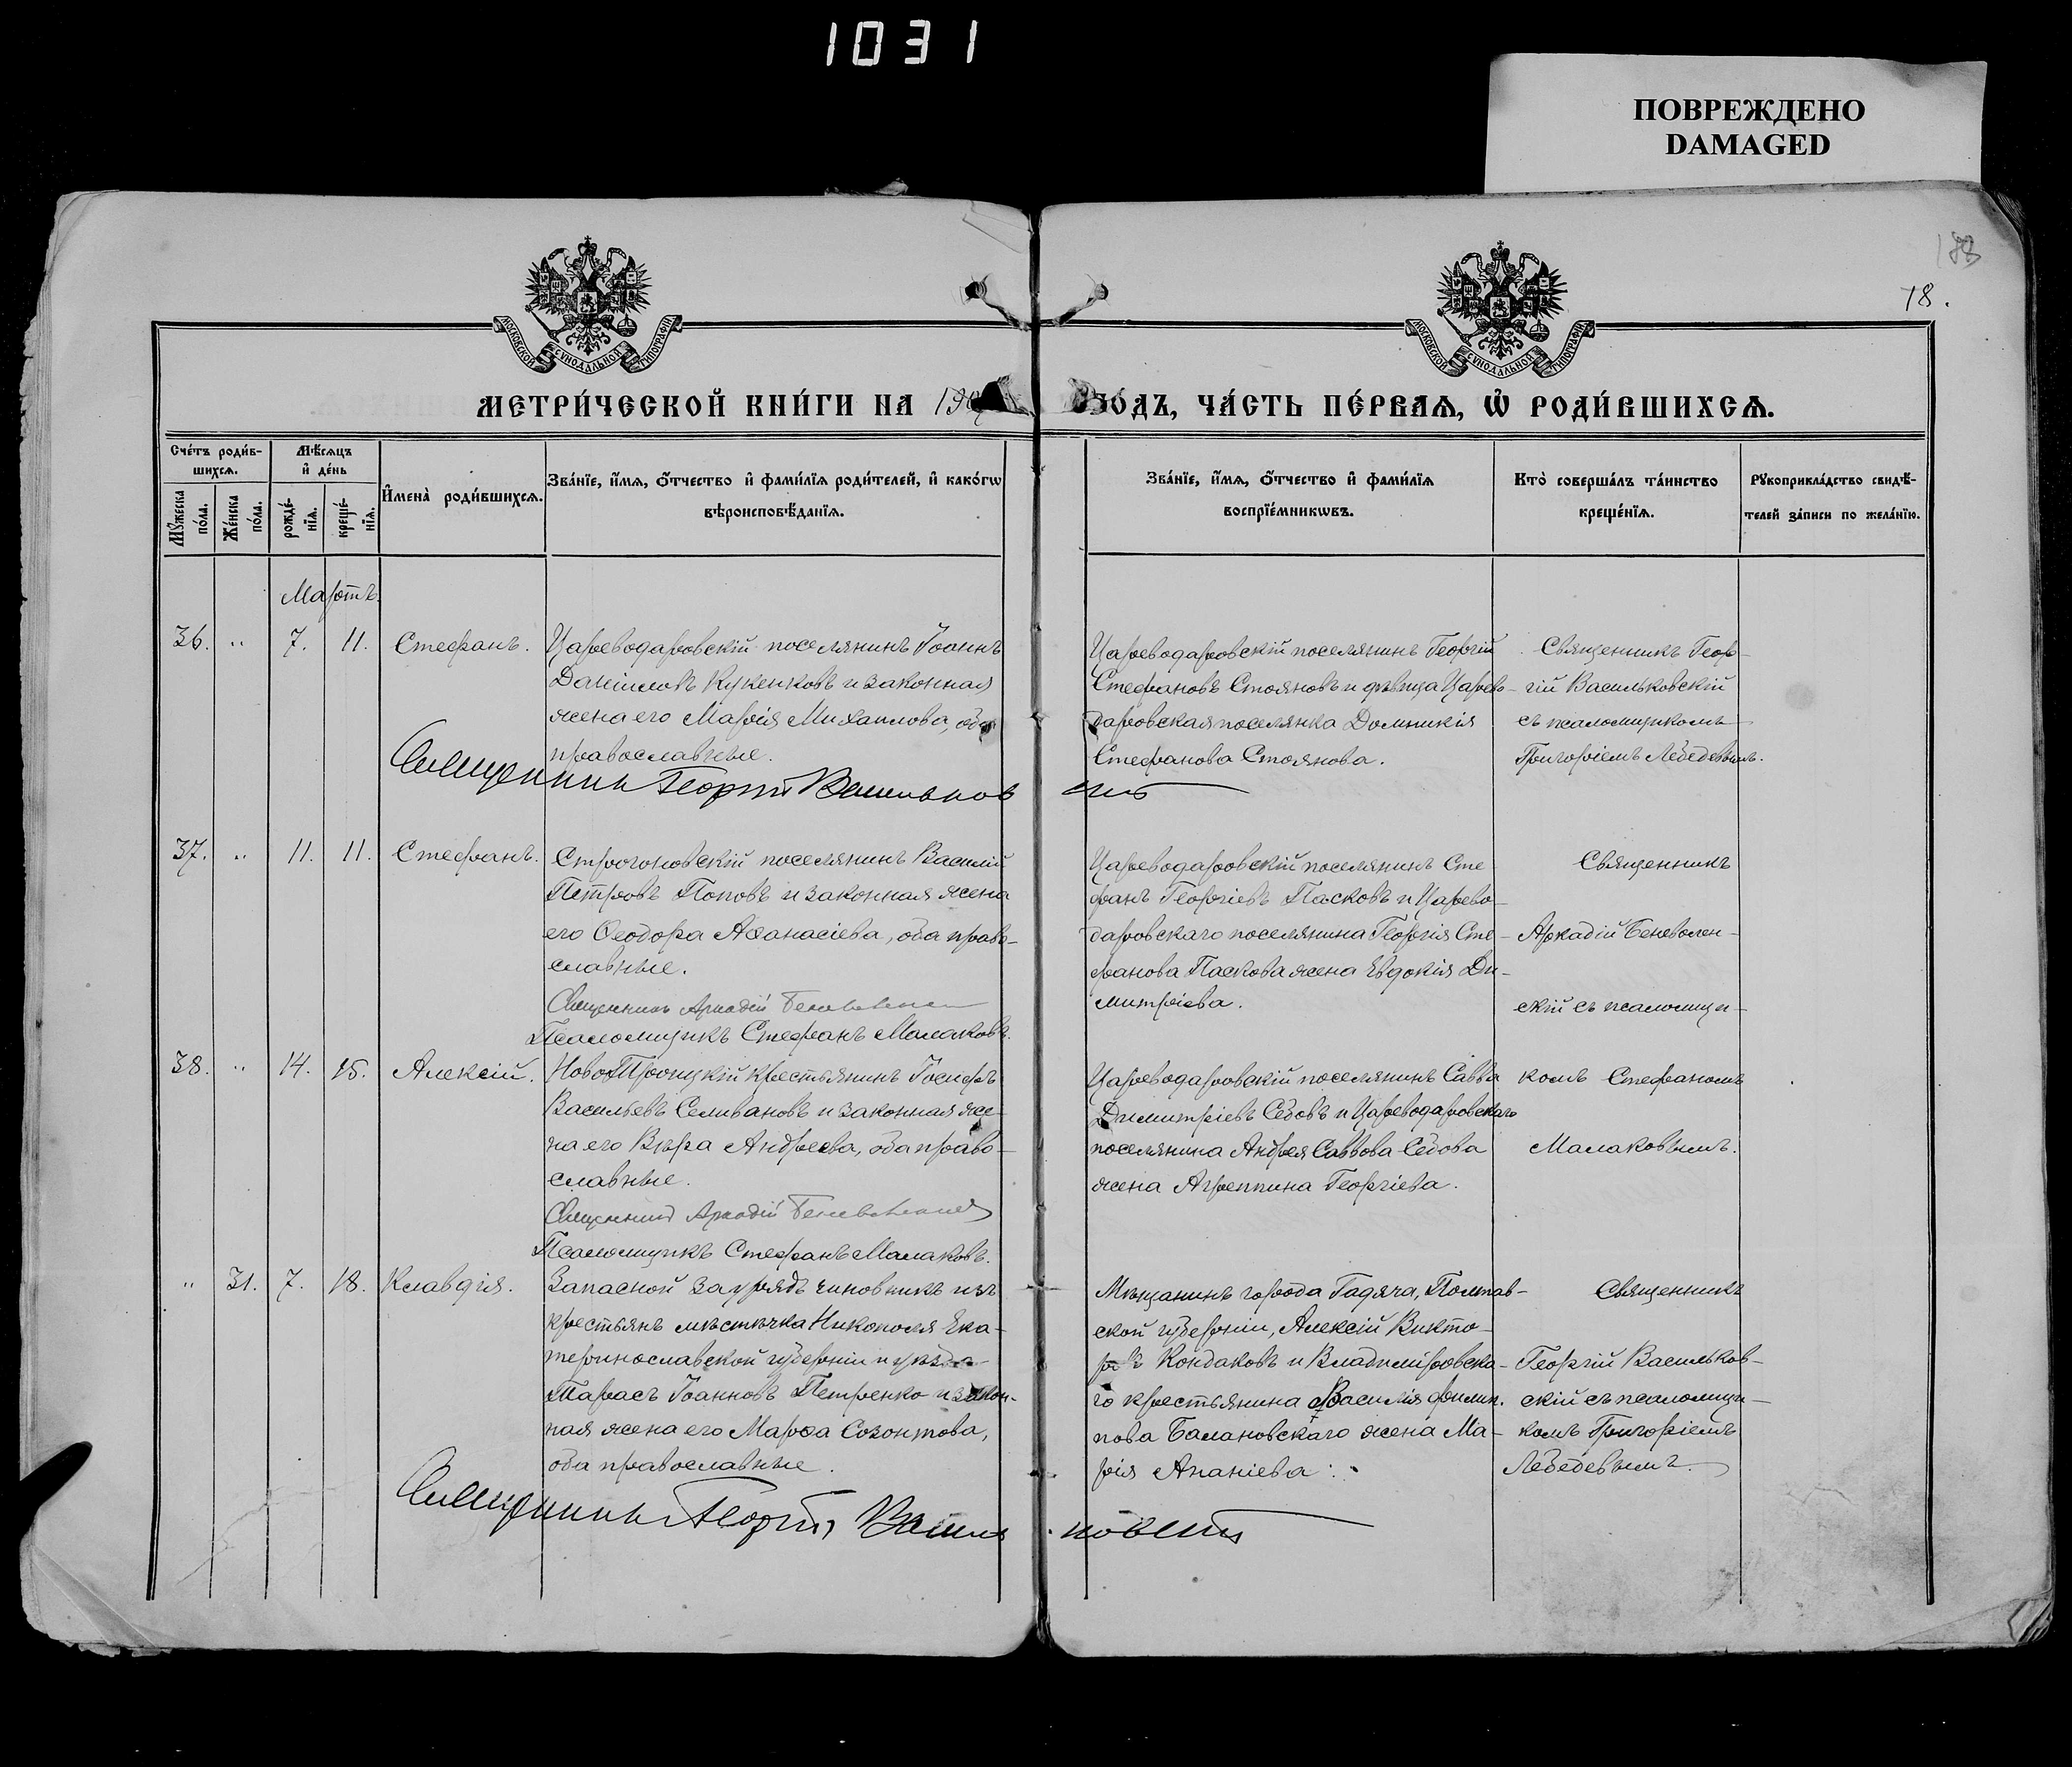 1031
ПОВРЕЖДЕНО
DAMAGED
18.
МОСКОВСКОЙ СѴНОДАЛЬНОЙ ТИПОГРАФІИ
МОСКОВСКОЙ СѴНОДАЛЬНОЙ ТИПОГРАФІИ
МЕТРИ́ЧЕСКОЙ КНИ́ГИ НА 190
ГО́ДЪ, ЧА́СТЬ ПЕ́РВАѦ, Ѽ РОДИ́ВШИХСѦ.
Сче́тъ роди́в-
шихсѧ.
Мѣ́сѧцъ
и҆ де́нь
Мꙋ́жеска
по́ла.
Же́нска
по́ла.
рожде́-
нїѧ.
креще́-
нїѧ.
И҆мена̀ роди́вшихсѧ.
Зва́нїе, и҆́мѧ, ѻ҆́тчество и҆ фами́лїѧ роди́телей, и҆ како́гѡ
вѣроисповѣ́данїѧ.
Зва́нїе, и҆́мѧ, ѻ҆́тчество и҆ фами́лїѧ
воспрїе́мникѡвъ.
Кто̀ соверша́лъ та́инство
креще́нїѧ.
Рꙋкоприкла́дство свидѣ́-
телей за́писи по жела́нїю.
Мартъ.
36. " 7. 11. Стефанъ.
Цареводаровскій поселянинъ Іоаннъ
Даніиловъ Кукенковъ и законная
жена его Марія Михаилова, оба
православные.
Цареводаровскій поселянинъ Георгій
Стефановъ Стояновъ и дѣвица Царево-
даровская поселянка Домникія
Стефанова Стоянова.
Священникъ Геор-
гій Васильковскій
съ псаломщикомъ
Григоріемъ Лебедевымъ.
Священникъ Георгій Васильковскій
37. " 11. 11. Стефанъ.
Строгоновскій поселянинъ Василій
Петровъ Поповъ и законная жена
его Ѳеодора Аѳанасіева, оба право-
славные.
Священникъ Аркадій Беневоленскій
Псаломщикъ Стефанъ Малаковъ.
Цареводаровскій поселянинъ Сте-
фанъ Георгіевъ Пасковъ и Царево-
даровскаго поселянина Георгія Сте-
фанова Паскова жена Евдокія Ди-
митріева.
Священникъ
Аркадій Беневолен-
скій съ псаломщи-
38. " 14. 15. Алексій.
НовоТроицкій крестьянинъ Іосифъ
Васильевъ Селивановъ и законная же-
на его Вѣра Андреева, оба право-
славные.
Священникъ Аркадій Беневоленскій
Псаломщикъ Стефанъ Малаковъ.
Цареводаровскій поселянинъ Савва
Димитріевъ Сѣдовъ и Цареводаровскаго
поселянина Андрея Саввова Сѣдова
жена Агреппина Георгіева.
комъ Стефаномъ
Малаковымъ.
" 31. 7. 18. Клавдія.
Запасной зауряд чиновникъ изъ
крестьянъ мѣстечка Никополя Ека-
теринославской губерніи и уѣзда
Тарасъ Іоанновъ Петренко и закон-
ная жена его Марѳа Созонтова,
оба православные.
Мѣщанинъ города Гадяча, Полтав-
ской губерніи, Алексій Викто-
ровъ Кондаковъ и Владиміровска-
го крестьянина Василія Филип-
пова Балановскаго жена Ма-
рія Ананіева.
Священникъ
Георгій Васильков-
скій съ псаломщи-
комъ Григоріемъ
Лебедевымъ.
Священникъ Георгій Васильковскій